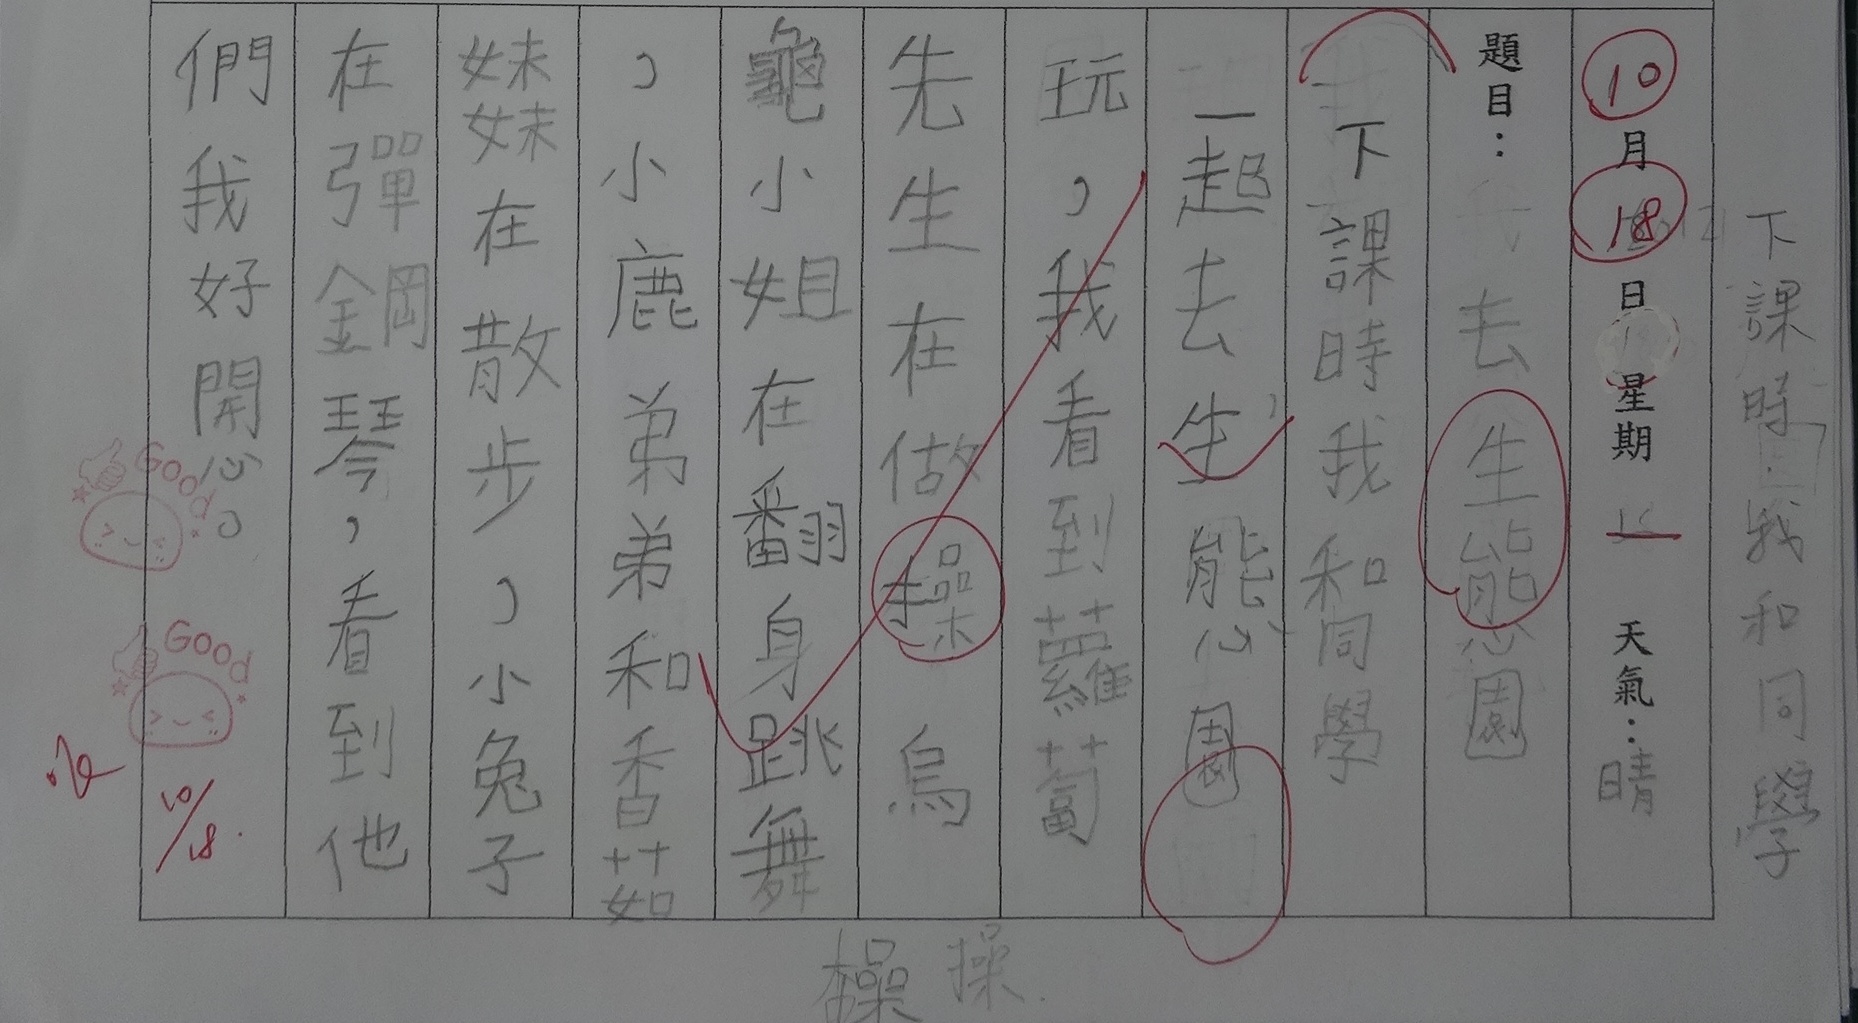 下課時我和同學
10月18日星期一 天氣：晴
題目：去生態園
下課時我和同學
一起去生態園
玩，我看到蘿蔔
先生在做操 烏
龜小姐在翻身跳舞
，小鹿弟弟和香菇
妹妹在散步，小兔子
在彈鋼琴，看到他
們我好開心。
Good
Good
10/18.
操 操